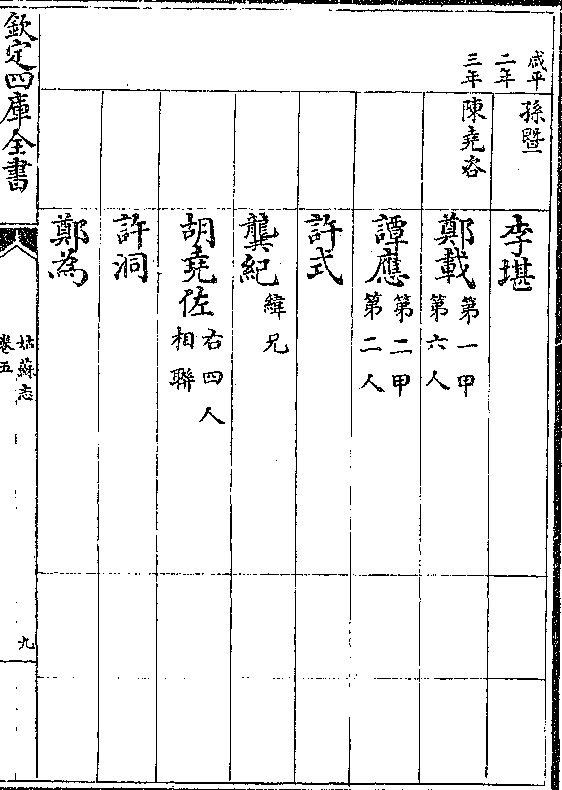 咸平
二年
孫暨
李堪
三年
陳堯咨
鄭載
第一甲
第六人
譚應
第二甲
第二人
許式
龔紀
緯兄
胡堯佐
右四人
相聯
許洞
鄭為
欽定四庫全書
姑蘇志
卷五
九